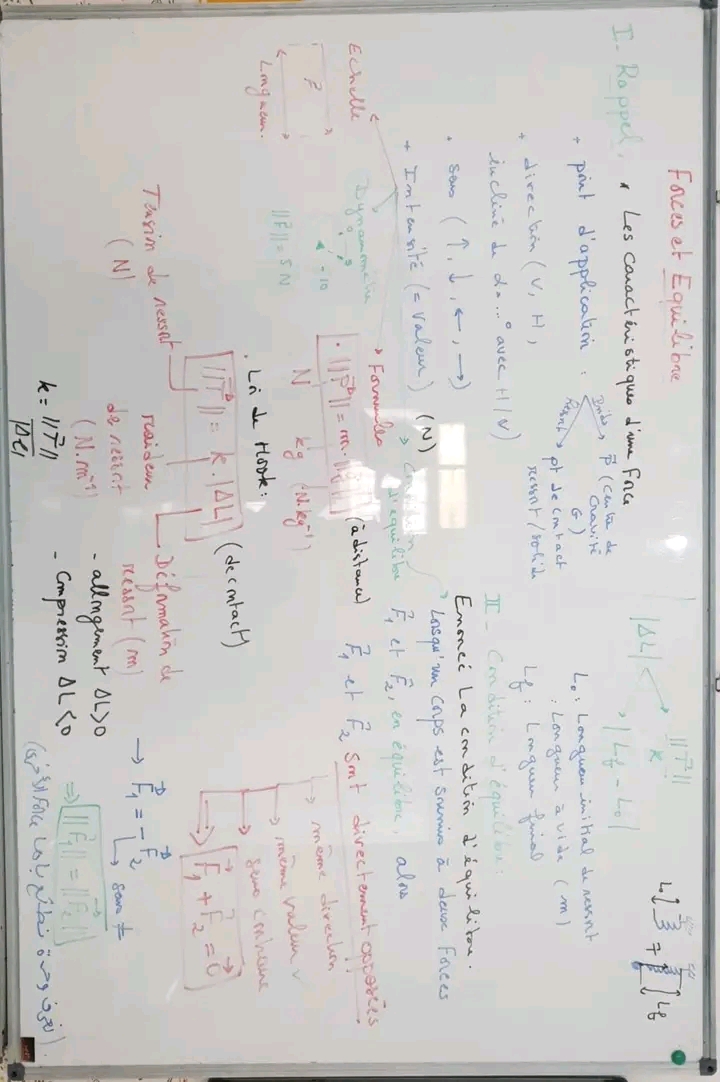 Forces et Equilibre
I- Rappel:
* Les caractéristiques d'une Force
+ point d'application :
Poids → P⃗ (centre de gravité G)
Ressort → pt de contact ressort/solide
+ direction (V, H,
incliné de α=...° avec H/V)
+ sens (↑, ↓, ←, →)
+ Intensité (= valeur) (N)
Echelle
Longueur.
Dynamomètre
10
||F⃗|| = 5 N
→ Formules
→ Condition d'équilibre
. ||P⃗|| = m. ||g⃗|| (à distance)
N kg (N.kg⁻¹)
. Loi de Hooke:
||T⃗|| = k. |ΔL| (de contact)
Tension de ressort
(N)
raideur
de ressort
(N.m⁻¹)
Déformation de
ressort (m)
- allongement ΔL>0
- Compression ΔL<0
k = ||T⃗|| / |ΔL|
|ΔL|
||T⃗|| / k
|Lf - L0|
L0 : Longueur initial de ressort
: Longueur à vide (m)
Lf : Longueur final
L0 Lf
II- Condition d'équilibre:
Enoncé La condition d'équilibre.
Lorsqu'un corps est soumis à deux Forces
F⃗1 et F⃗2, en équilibre, alors
F⃗1 et F⃗2 sont directement opposées.
même direction
même valeur
sens contraire
F⃗1 + F⃗2 = 0⃗
→ F⃗1 = -F⃗2
sens ≠
=> ||F⃗1|| = ||F⃗2||